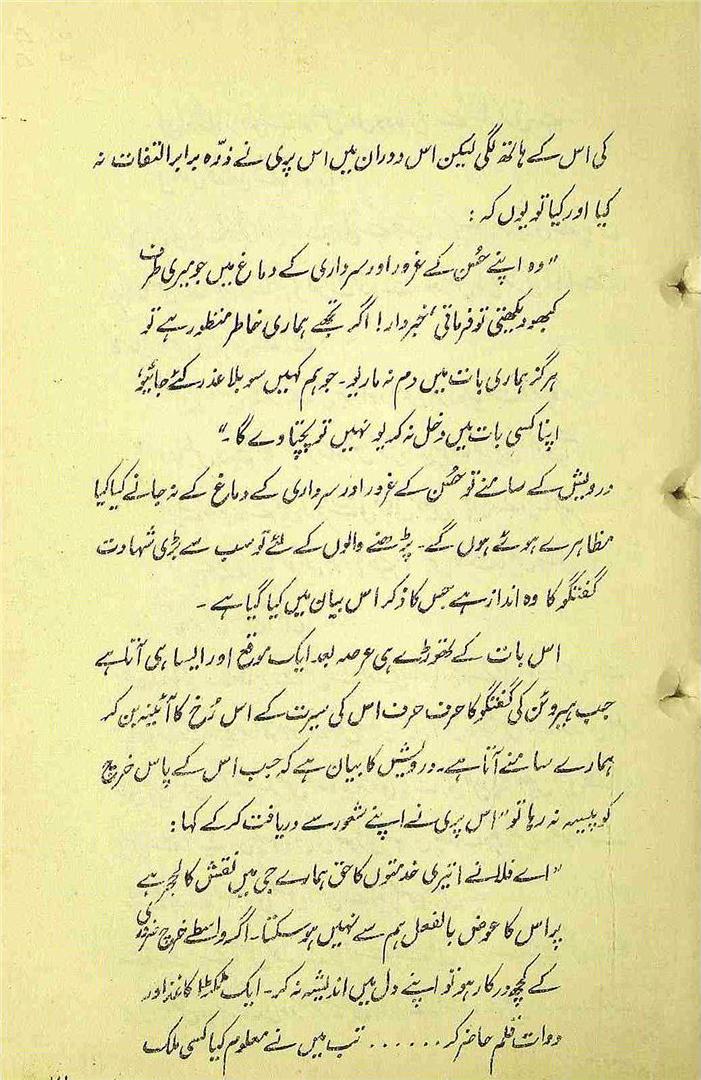 کی اس کے ہاتھ لگی لیکن اس دوران میں اس پری نے ذرّہ برابر التفات نہ
کیا اور کیا تو یوں کہ :
"وہ اپنے حُسن کے غرور اور سرداری کے دماغ میں جو میری طرف
کبھو دیکھتی تو فرماتی ‘خبردار! اگر تجھے ہماری خاطر منظور ہے تو
ہرگز ہماری بات میں دم نہ ماریو۔ جو ہم کہیں سو بلا عذر کئے جائیو’
اپنا کسی بات میں دخل نہ کریو نہیں تو پچتاوے گا۔"
درویش کے سامنے تو حُسن کے غرور اور سرداری کے دماغ کے نہ جانے کیا کیا
مظاہرے ہوئے ہوں گے۔ پڑھنے والوں کے لئے تو سب سے بڑی شہادت
گفتگو کا وہ انداز ہے جس کا ذکر اس بیان میں کیا گیا ہے۔
اس بات کے تھوڑے ہی عرصہ بعد ایک موقع اور ایسا ہی آتا ہے
جب ہیروئن کی گفتگو کا حرف حرف اس کی سیرت کے اس رُخ کا آئینہ بن کر
ہمارے سامنے آتا ہے۔ درویش کا بیان ہے کہ جب اس کے پاس خرچ
کو پیسہ نہ رہا تو "اس پری نے اپنے شعور سے دریافت کر کے کہا :
"اے فلانے! تیری خدمتوں کا حق ہمارے جی میں نقش کالحجر ہے
پر اس کا عوض بالفعل ہم سے نہیں ہو سکتا۔ اگر واسطے خرچ ضروری
کے کچھ درکار ہو تو اپنے دل میں اندیشہ نہ کر۔ ایک ٹکڑا کاغذ اور
دوات قلم حاضر کر ...... تب میں نے معلوم کیا کسی ملک